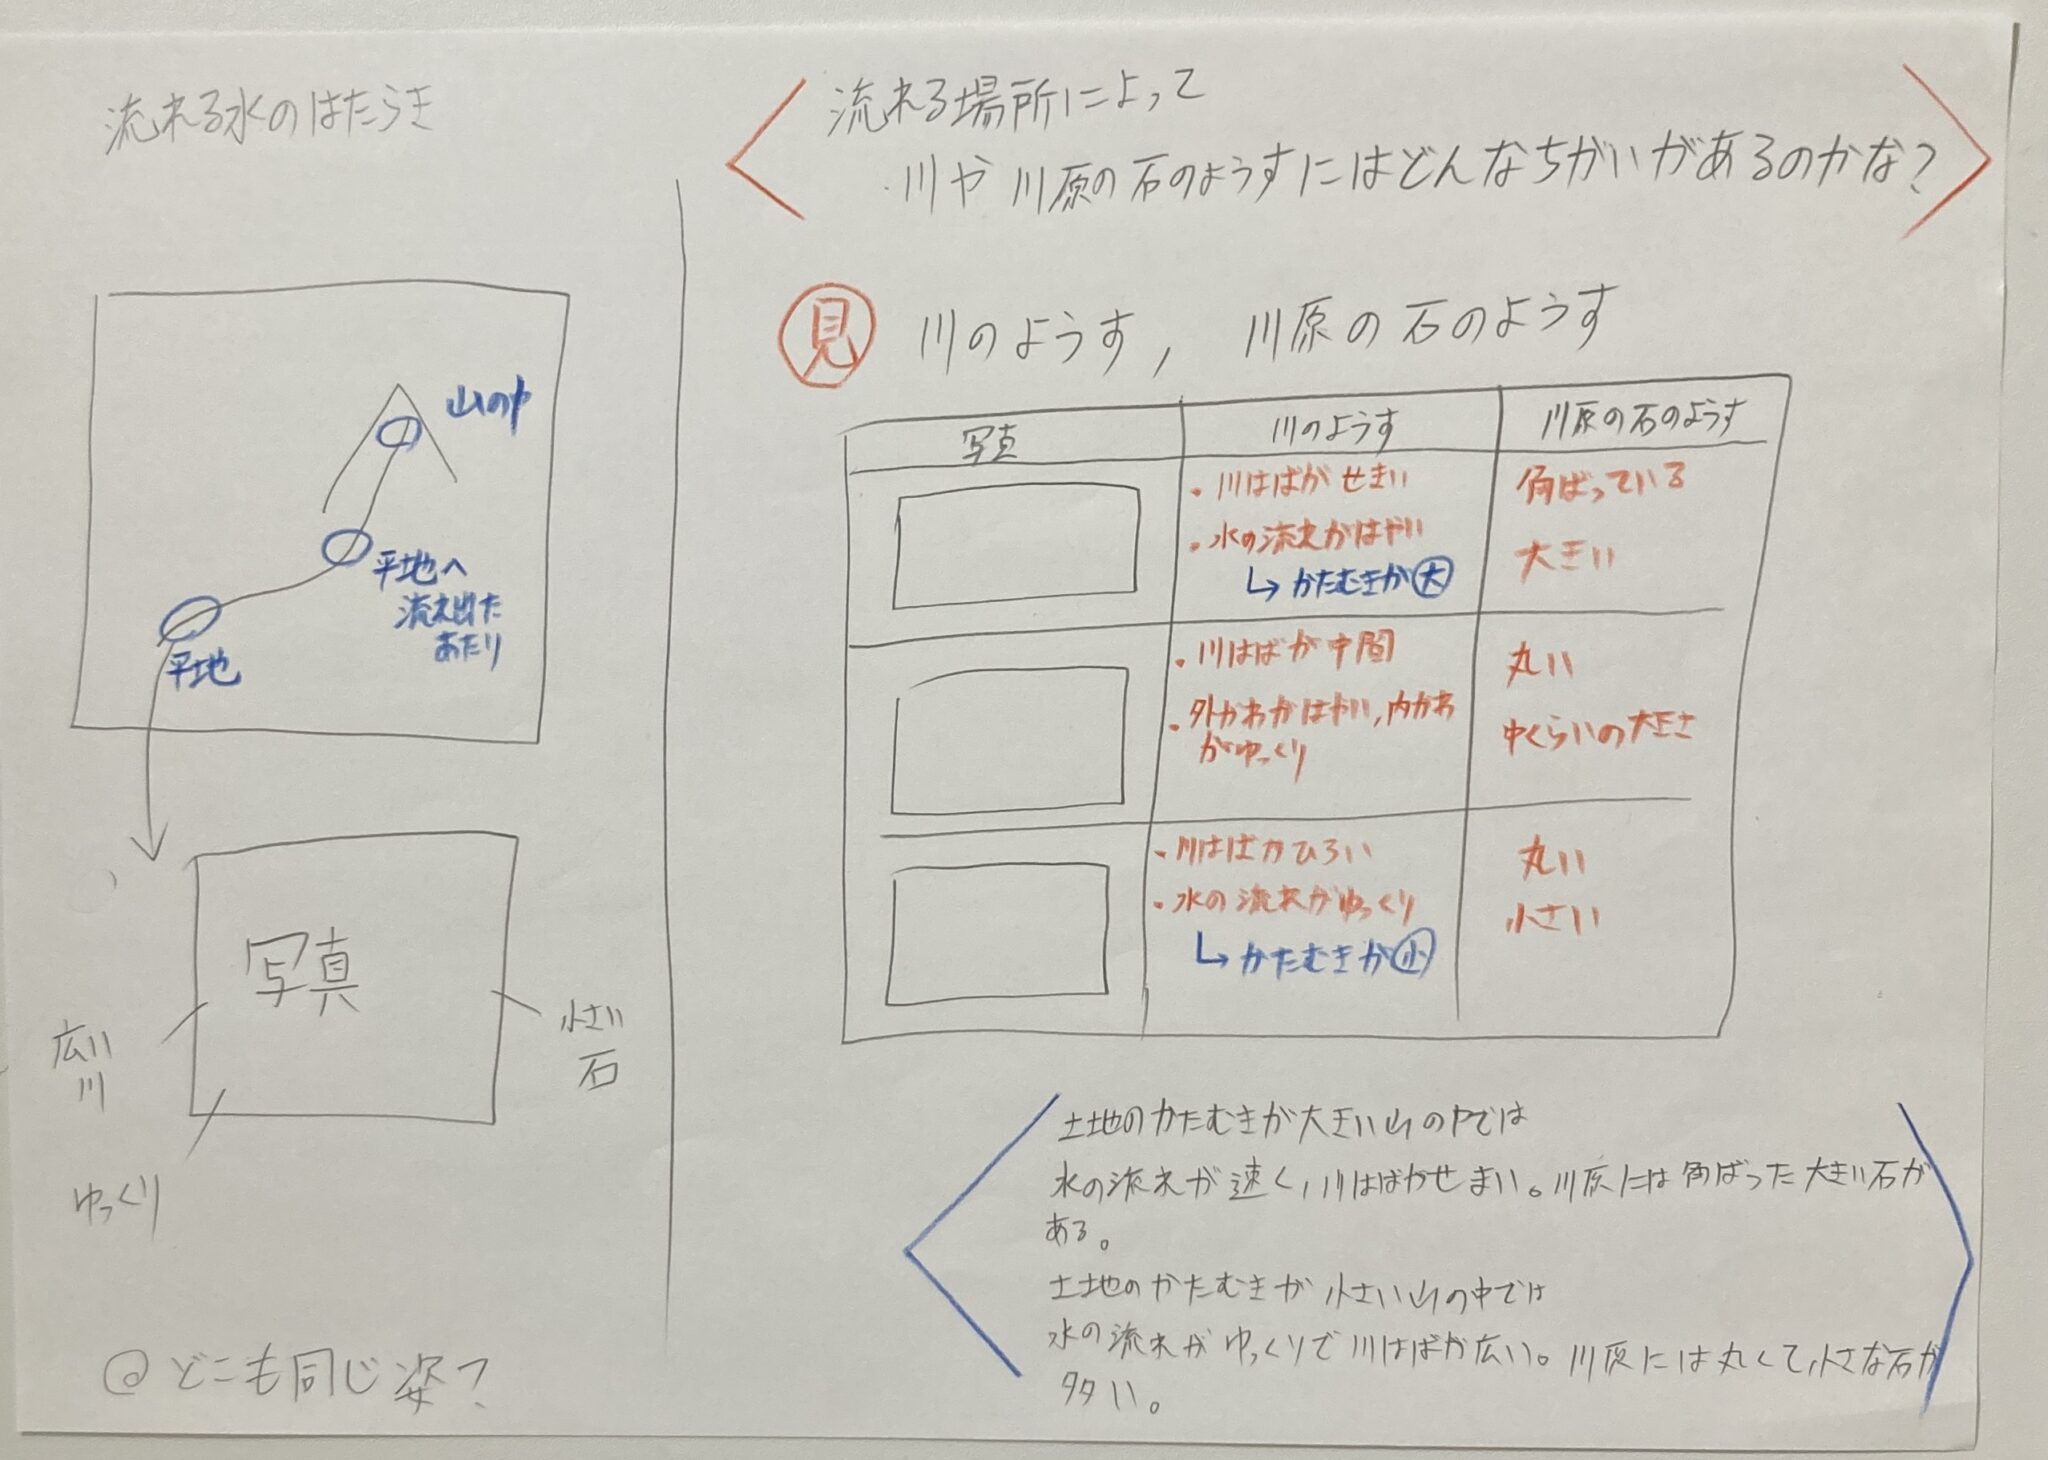 流れる水のはたらき
山の中
平地へ
流れ出た
あたり
平地
写真
広い
川
小さい
石
ゆっくり
@どこも同じ姿?
流れる場所によって
川や川原の石のようすにはどんなちがいがあるのかな?
見 川のようす, 川原の石のようす
写真 川のようす 川原の石のようす
・川はばがせまい
・水の流れがはやい
↳かたむきが大
角ばっている
大きい
・川はばが中間
・外がわがはやい,内がわ
がゆっくり
丸い
中くらいの大きさ
・川はばがひろい
・水の流れがゆっくり
↳かたむきが小
丸い
小さい
土地のかたむきが大きい山の中では
水の流れが速く,川はばがせまい。川原には角ばった大きい石が
ある。
土地のかたむきが小さい山の中では
水の流れがゆっくりで川はばが広い。川原には丸くて,小さな石が
多い。